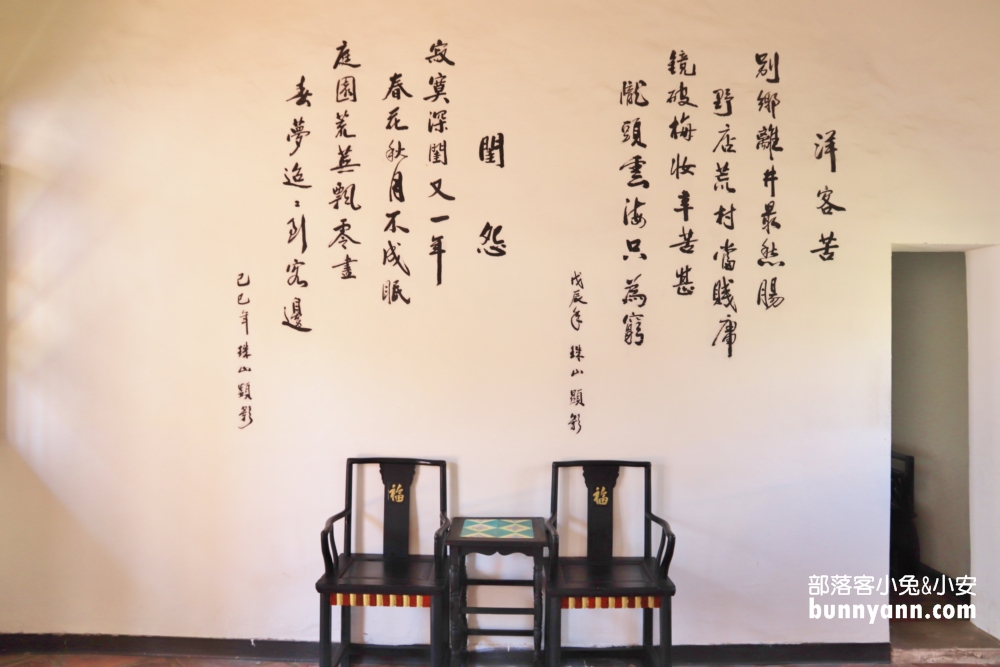 洋客苦
別鄉離井最愁腸
野店荒村當賤庸
鏡破梅妝辛苦甚
隴頭雲海只為窮
戊辰年 珠山 顯影
閨怨
寂寞深閨又一年
春花秋月不成眠
庭園荒蕪飄零盡
春夢迢〻到客邊
己巳年 珠山 顯影
福
福
部落客小兔&小安
bunnyann.com